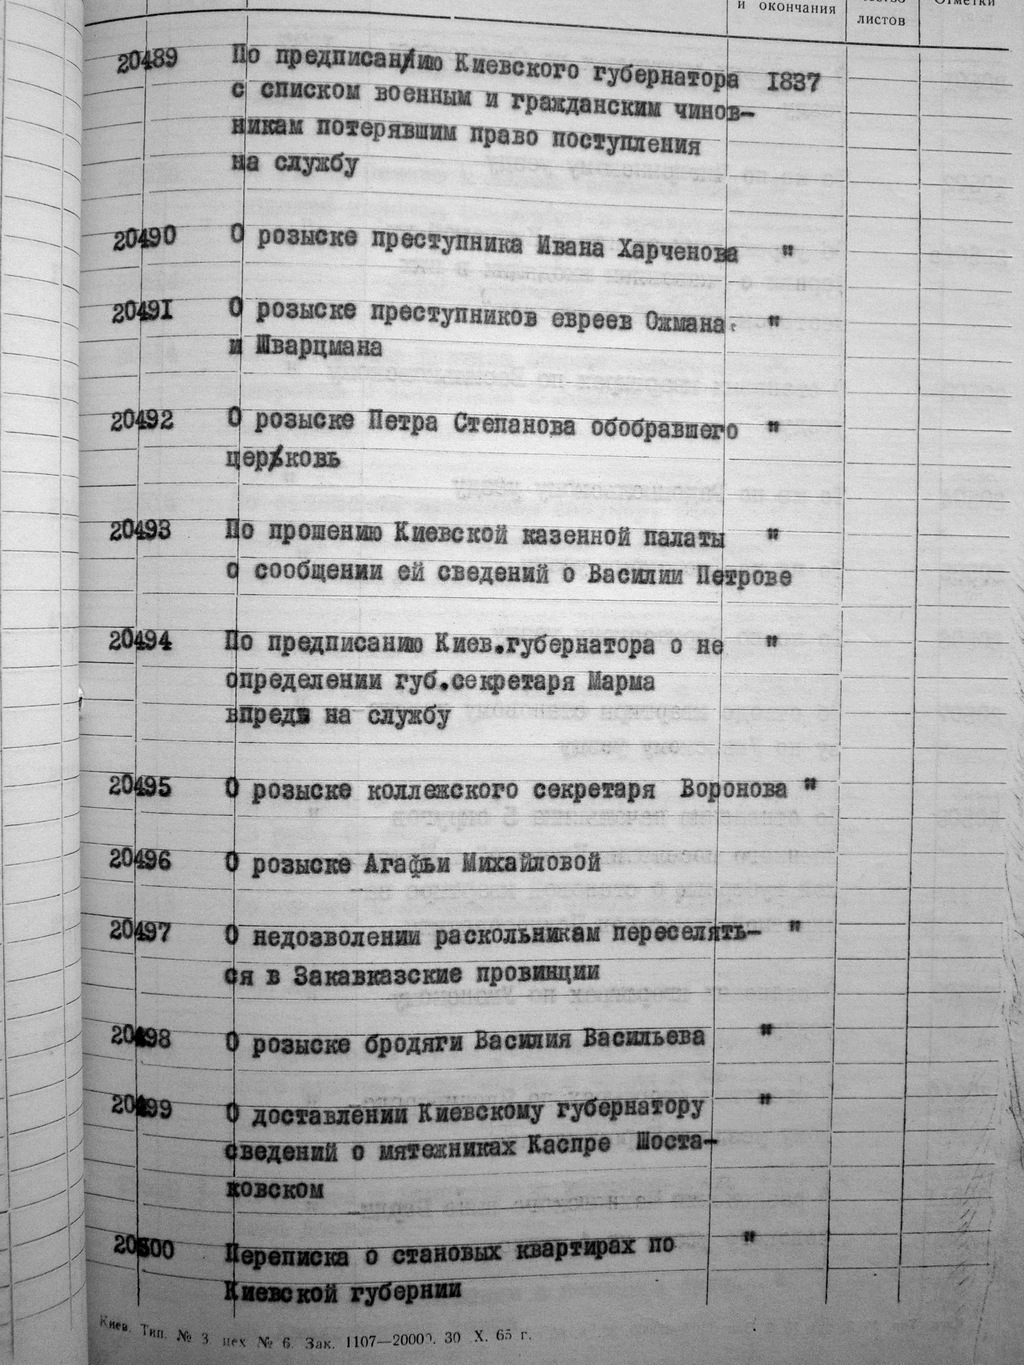 и окончания
листов
Отметки
20489 По предписан/ию Киевского губернатора 1837
с списком военным и гражданским чинов-
никам потерявшим право поступления
на службу
20490 О розыске преступника Ивана Харченова "
20491 О розыске преступников евреев Ожмана "
и Шварцмана
20492 О розыске Петра Степанова обобравшего "
церковь
20493 По прошению Киевской казенной палаты "
о сообщении ей сведений о Василии Петрове
20494 По предписанию Киев.губернатора о не "
определении губ.секретаря Марма
впредь на службу
20495 О розыске коллежского секретаря Воронова "
20496 О розыске Агафьи Михайловой
20497 О недозволении раскольникам переселять- "
ся в Закавказские провинции
20498 О розыске бродяги Василия Васильева "
20499 О доставлении Киевскому губернатору "
сведений о мятежниках Каспре Шоста-
ковском
20500 Переписка о становых квартирах по "
Киевской губернии
Киев. Тип. № 3 цех № 6. Зак. 1107—20000. 30 X. 65 г.